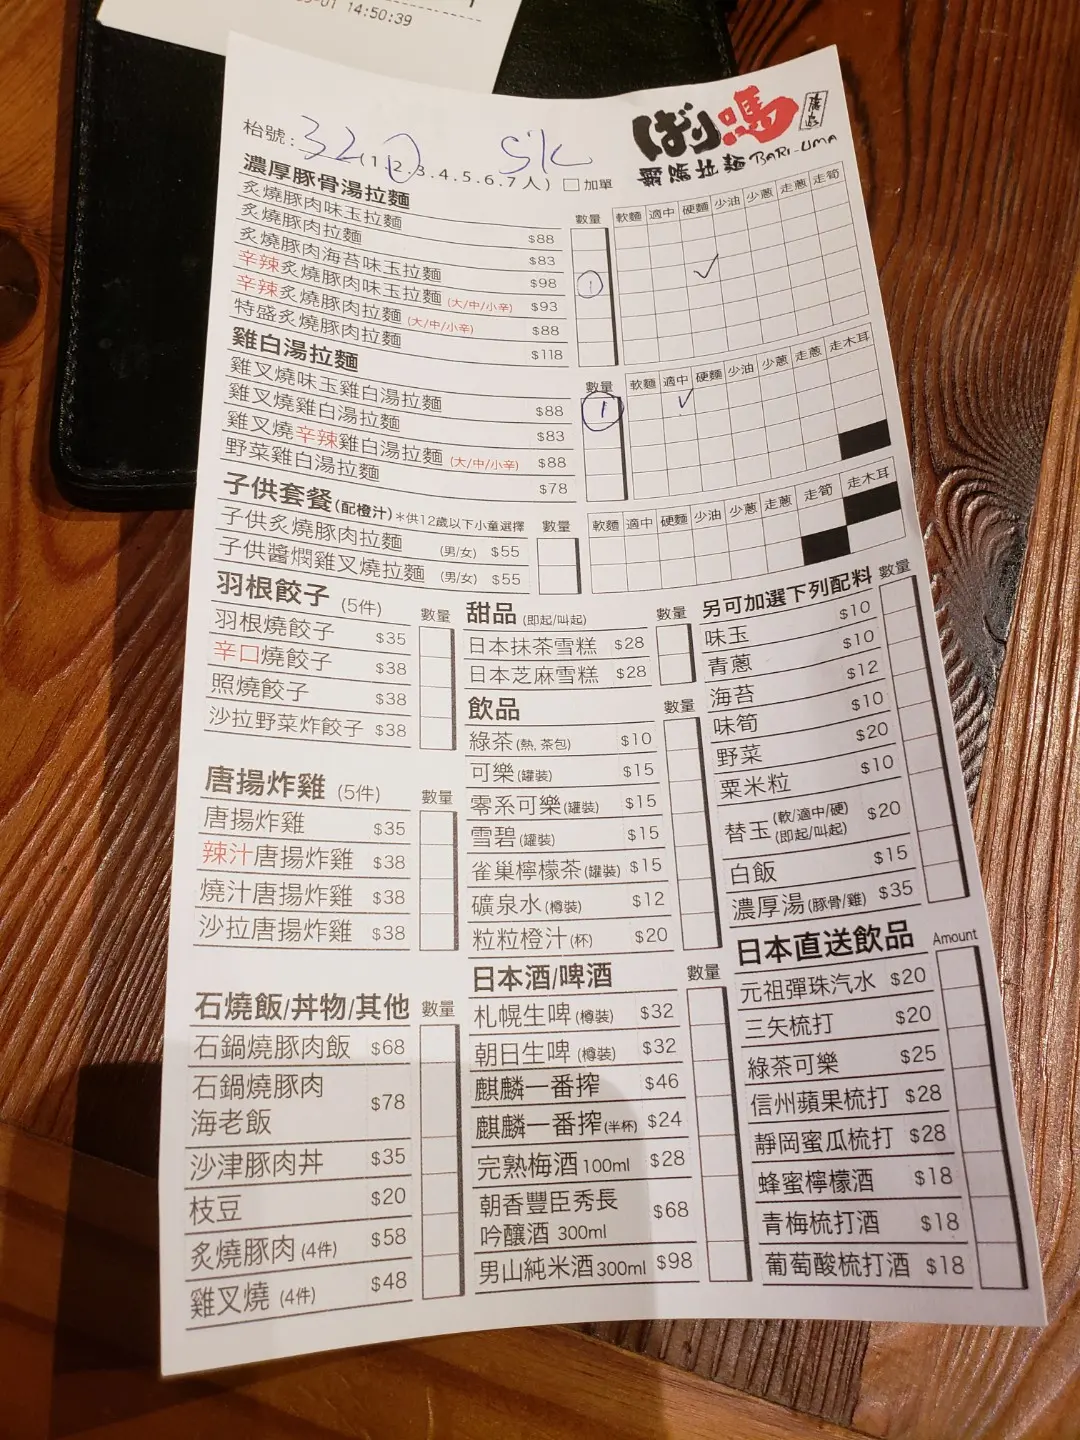 -01 14:50:39
枱號: 32 (1.2.3.4.5.6.7人) 加單
SK
ばり嗎
霸嗎拉麵 BARI-UMA
濃厚豚骨湯拉麵 數量 軟麵 適中 硬麵 少油 少蔥 走蔥 走筍
炙燒豚肉味玉拉麵 $88
炙燒豚肉拉麵 $83
炙燒豚肉海苔味玉拉麵 $98 1 ✓
辛辣炙燒豚肉味玉拉麵 (大/中/小辛) $93
辛辣炙燒豚肉拉麵 (大/中/小辛) $88
特盛炙燒豚肉拉麵 $118
雞白湯拉麵 數量 軟麵 適中 硬麵 少油 少蔥 走蔥 走木耳
雞叉燒味玉雞白湯拉麵 $88 1 ✓
雞叉燒雞白湯拉麵 $83
雞叉燒辛辣雞白湯拉麵 (大/中/小辛) $88
野菜雞白湯拉麵 $78
子供套餐 (配橙汁) *供12歲以下小童選擇 數量 軟麵 適中 硬麵 少油 少蔥 走蔥 走筍 走木耳
子供炙燒豚肉拉麵 (男/女) $55
子供醬燜雞叉燒拉麵 (男/女) $55
羽根餃子 (5件) 數量
羽根燒餃子 $35
辛口燒餃子 $38
照燒餃子 $38
沙拉野菜炸餃子 $38
唐揚炸雞 (5件) 數量
唐揚炸雞 $35
辣汁唐揚炸雞 $38
燒汁唐揚炸雞 $38
沙拉唐揚炸雞 $38
石燒飯/丼物/其他 數量
石鍋燒豚肉飯 $68
石鍋燒豚肉
海老飯 $78
沙津豚肉丼 $35
枝豆 $20
炙燒豚肉 (4件) $58
雞叉燒 (4件) $48
甜品 (即起/叫起) 數量
日本抹茶雪糕 $28
日本芝麻雪糕 $28
飲品 數量
綠茶 (熱, 茶包) $10
可樂 (罐裝) $15
零系可樂 (罐裝) $15
雪碧 (罐裝) $15
雀巢檸檬茶 (罐裝) $15
礦泉水 (樽裝) $12
粒粒橙汁 (杯) $20
日本酒/啤酒 數量
札幌生啤 (樽裝) $32
朝日生啤 (樽裝) $32
麒麟一番搾 $46
麒麟一番搾 (半杯) $24
完熟梅酒 100ml $28
朝香豐臣秀長
吟釀酒 300ml $68
男山純米酒 300ml $98
另可加選下列配料 數量
味玉 $10
青蔥 $10
海苔 $12
味筍 $10
野菜 $20
粟米粒 $10
替玉 (軟/適中/硬) (即起/叫起) $20
白飯 $15
濃厚湯 (豚骨/雞) $35
日本直送飲品 Amount
元祖彈珠汽水 $20
三矢梳打 $20
綠茶可樂 $25
信州蘋果梳打 $28
靜岡蜜瓜梳打 $28
蜂蜜檸檬酒 $18
青梅梳打酒 $18
葡萄酸梳打酒 $18